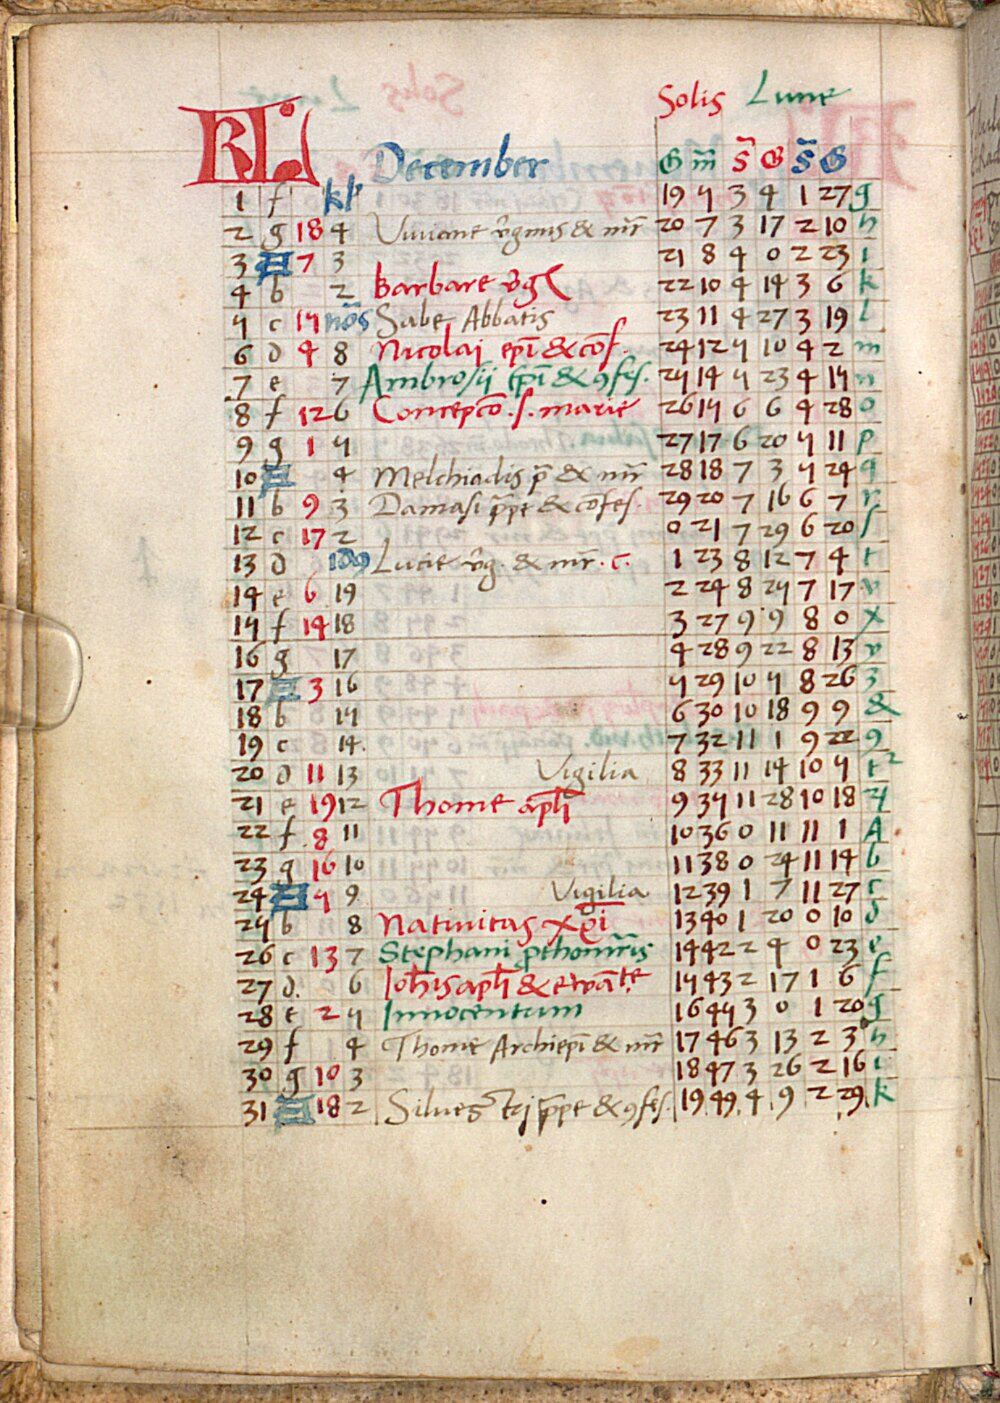 Solis Lune
KL December G m̄ s̄ G s̄ G
1 f kl' 19 5 3 4 1 27 g
2 g 18 4 Viviane v̄ginis & mr̄ 20 7 3 17 2 10 h
3 A 7 3 21 8 4 0 2 23 i
4 b 2 Barbare v̄g 22 10 4 14 3 6 k
5 c 15 nōs Sabe Abbatis 23 11 4 27 3 19 l
6 d 4 8 Nicolaj ep̄i & cōf. 24 12 5 10 4 2 m
7 e 7 Ambrosij ep̄i & ꝯfes. 25 14 5 23 4 15 n
8 f 12 6 Concepcō .s. marie 26 15 6 6 4 28 o
9 g 1 5 27 17 6 20 5 11 p
10 A 4 Melchiadis p̄ & mr̄ 28 18 7 3 5 24 q
11 b 9 3 Damasi p̄pe & cōfes. 29 20 7 16 6 7 r
12 c 17 2 0 21 7 29 6 20 ſ
13 d idꝰ Lucie v̄g. & mr̄. c. 1 23 8 12 7 4 t
14 e 6 19 2 24 8 25 7 17 v
15 f 14 18 3 27 9 9 8 0 x
16 g 17 4 28 9 22 8 13 y
17 A 3 16 5 29 10 5 8 26 z
18 b 15 6 30 10 18 9 9 &
19 c 14. 7 32 11 1 9 22 ꝯ
20 d 11 13 Vigilia 8 33 11 14 10 5
21 e 19 12 Thome apl̄i 9 35 11 28 10 18
22 f 8 11 10 36 0 11 11 1 A
23 g 16 10 11 38 0 24 11 14 b
24 A 5 9 Vigilia 12 39 1 7 11 27 c
25 b 8 Nativitas xp̄i 13 40 1 20 0 10 d
26 c 13 7 Stephani ꝓthomr̄is 14 42 2 4 0 23 e
27 d. 6 Ioh̄is apl̄i & evāte 15 43 2 17 1 6 f
28 e 2 5 Innocentum 16 45 3 0 1 20 g
29 f 4 Thome Archiep̄i & mr̄ 17 46 3 13 2 3 h
30 g 10 3 18 47 3 26 2 16 i
31 A 18 2 Silvestrj p̄pe & ꝯfes. 19 49 4 9 2 29 k